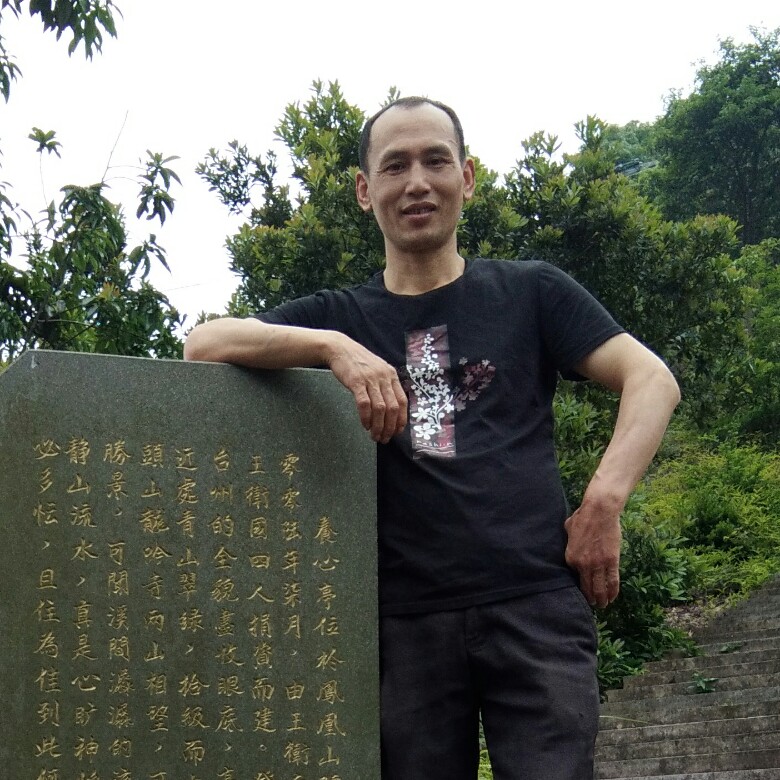 養心亭位於鳳凰山
零零伍年柒月，由王衛
王衛國四人捐資而建。
台州的全貌盡收眼底，
近處青山翠绿，拾級而
頭山龍吟寺两山相望，
勝景，可聞溪間潺潺的
静山流水，真是心旷神
必多怅，且住為佳到此